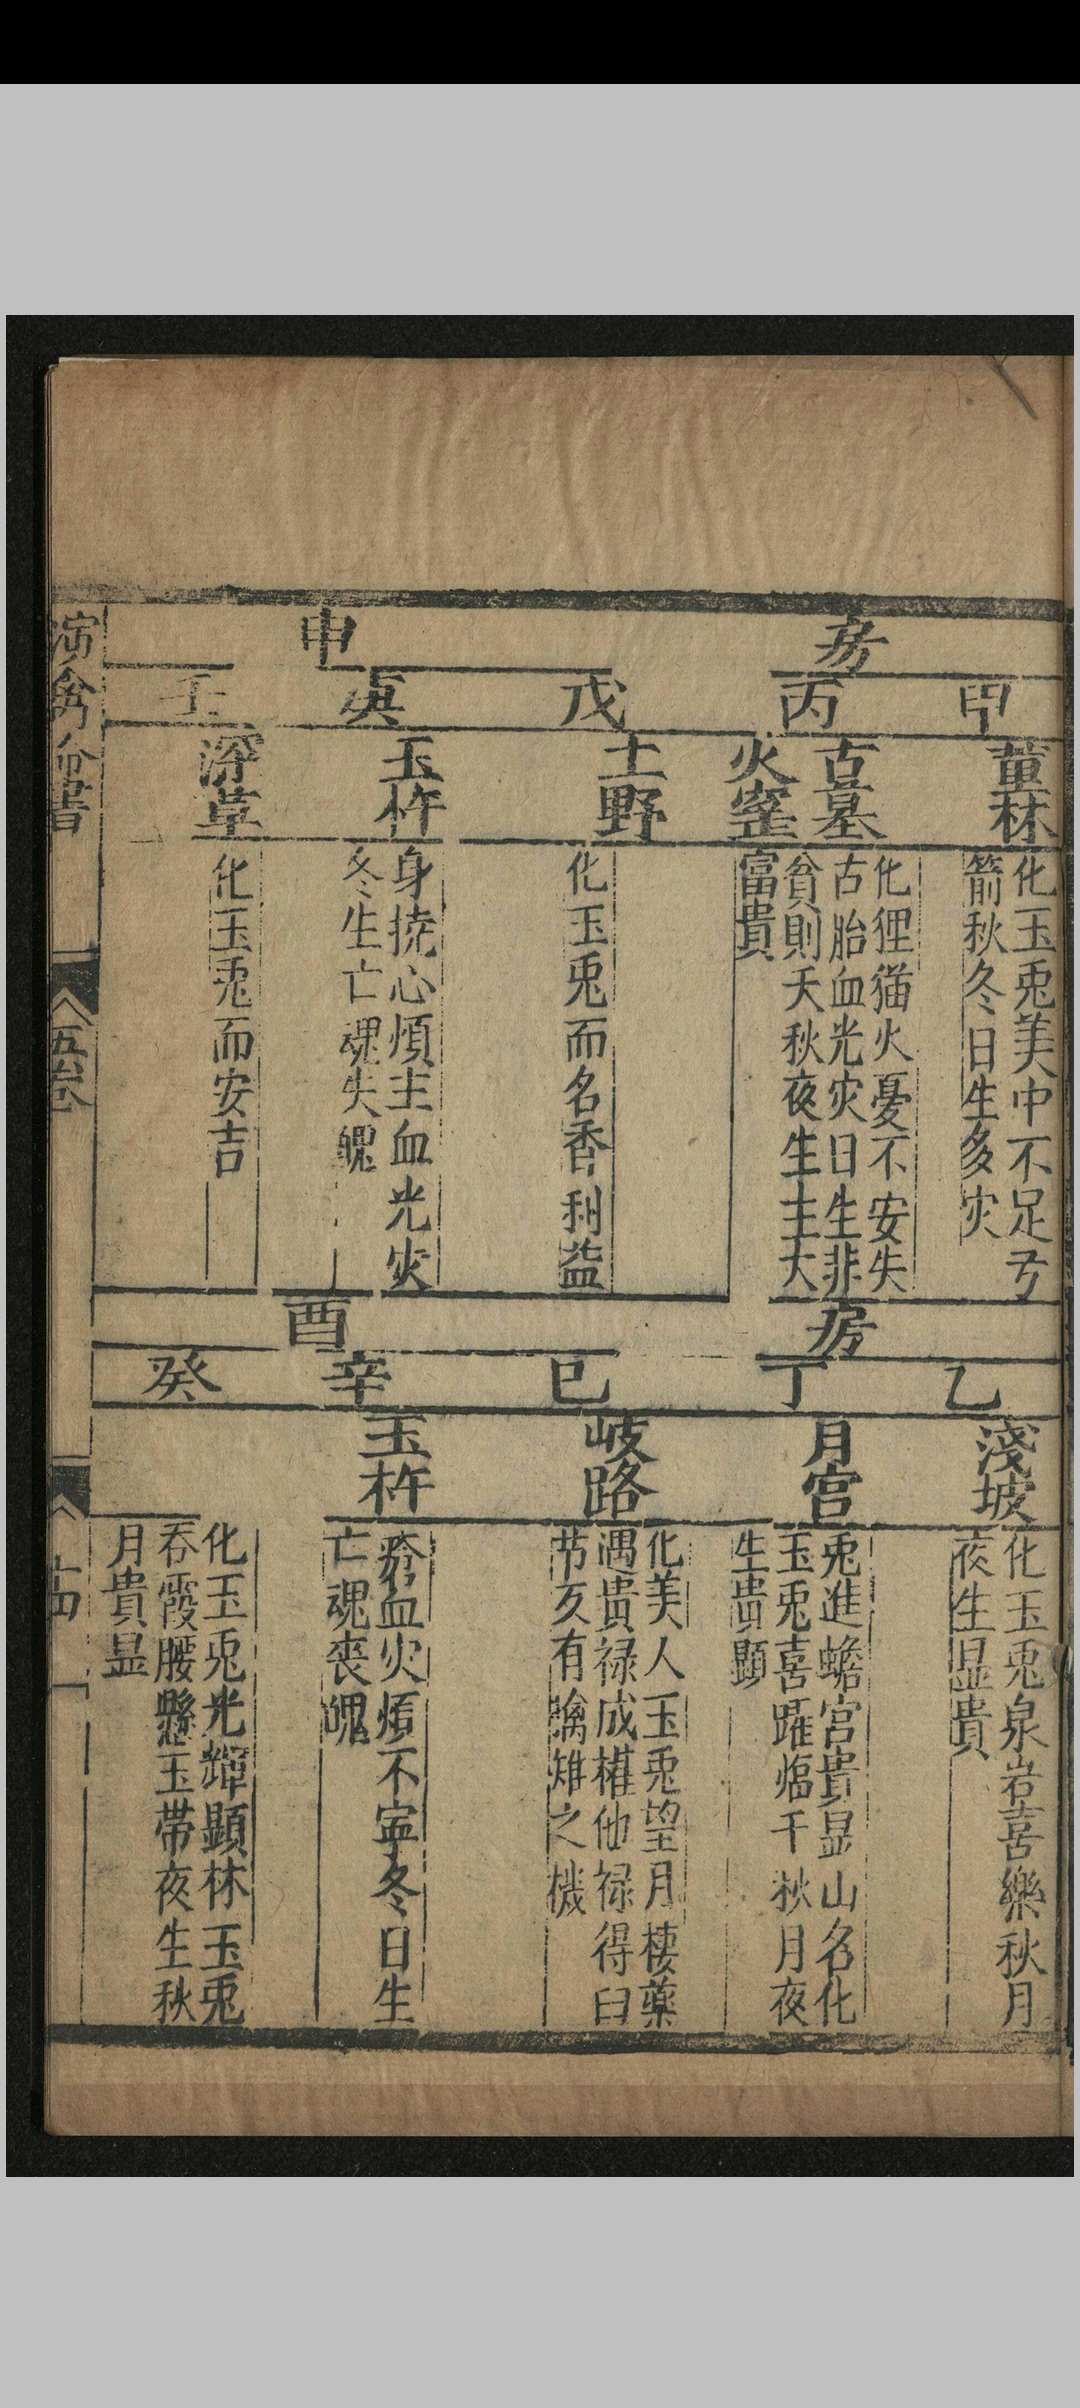 房
申
甲
薫林
化玉兎美中不足歹
箭秋冬日生多灾
丙
古墓
火窰
化狸猫火憂不安失
古胎血光灾日生非
貧則夭秋夜生主大
富貴
戊
土野
化玉兎而名香利益
庚
玉杵
身撓心煩主血光灾
冬生亡魂失魄
壬
深草
化玉兎而安吉
房
酉
乙
淺坡
化玉兎泉岩喜樂秋月
夜生显貴
丁
月宮
兎進蟾宮貴显山名化
玉兎喜躍临千秋月夜
生貴顯
巳
岐路
化美人玉兎望月棲藥
遇貴禄成權他禄得臼
节亥有擒雉之機
辛
玉杵
癆血火煩不寧冬日生
亡魂喪魄
癸
化玉兎光輝顯林玉兎
吞霞腰懸玉带夜生秋
月貴显
演禽命書
五卷